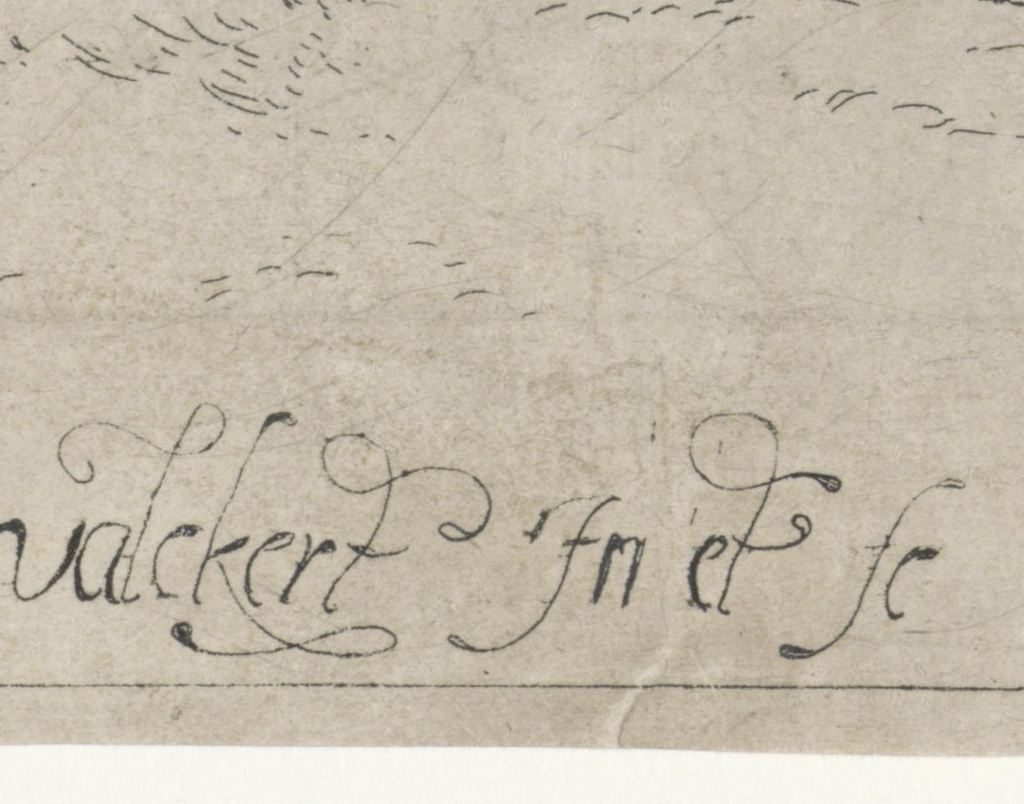 valckert In et fe